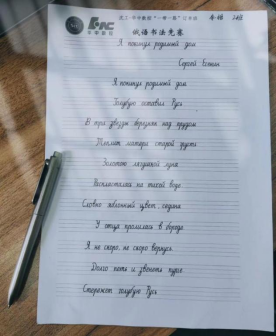 华中数控
俄语书法竞赛
Я покинул родимый дом
Сергей Есенин
Я покинул родимый дом
Голубую оставил Русь
В три звезды березняк над прудом
Теплит матери старой грусть
Золотою лягушкой луна
Распласталась на тихой воде
Словно яблонный цвет, седина
У отца пролилась в бороде
Я не скоро, не скоро вернусь
Долго петь и звенеть пурге
Стережет голубую Русь